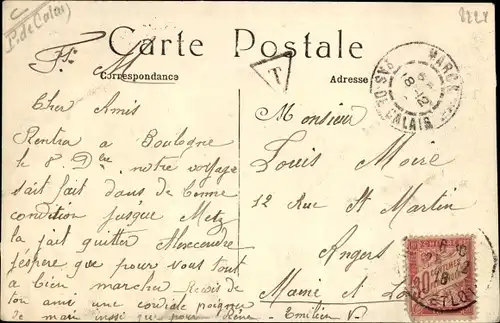 P. de Calais)
Carte Postale
Correspondance
Adresse
T
MARCK
PAS-DE-CALAIS
18
12
Cher Amis
Rentra a Boulogne
le 8 Dbre notre voyage
sait fait dans de bonne
condition jusque Metz
la fait quitter Alexcendre
j'espere que pour vous tout
a bien marcher
ton ami une cordiale poigner
de main
que pour Réné
Emilien V.
Monsieur
Louis Moire
12 Rue St Martin
Angers
Maine et Loire
30
CENTIMES